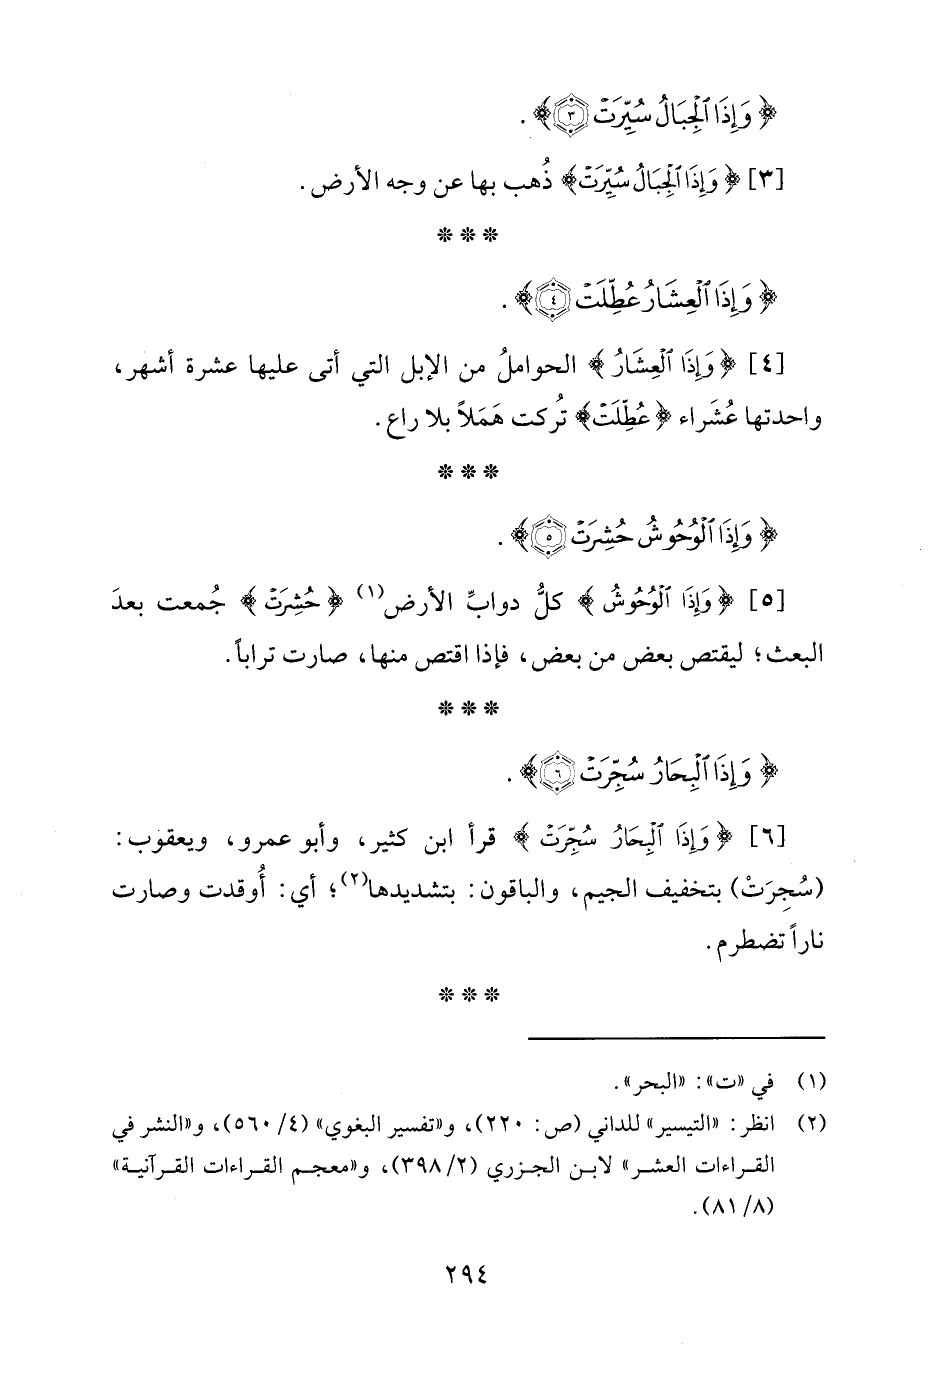 ﴿ وَإِذَا ٱلْجِبَالُ سُيِّرَتْ ٣﴾ .
[٣] ﴿ وَإِذَا ٱلْجِبَالُ سُيِّرَتْ﴾ ذُهب بها عن وجه الأرض .
* * *
﴿ وَإِذَا ٱلْعِشَارُ عُطِّلَتْ ٤﴾ .
[٤] ﴿ وَإِذَا ٱلْعِشَارُ ﴾ الحواملُ من الإبل التي أتى عليها عشرة أشهر،
واحدتها عُشَراء ﴿ عُطِّلَتْ﴾ تُركت هَمَلاً بلا راع .
* * *
﴿ وَإِذَا ٱلْوُحُوشُ حُشِرَتْ ٥﴾ .
[٥] ﴿ وَإِذَا ٱلْوُحُوشُ ﴾ كلُّ دوابِّ الأرض(١) ﴿ حُشِرَتْ ﴾ جُمعت بعدَ
البعث؛ ليقتص بعض من بعض، فإذا اقتص منها، صارت تراباً.
* * *
﴿ وَإِذَا ٱلْبِحَارُ سُجِّرَتْ ٦﴾ .
[٦] ﴿ وَإِذَا ٱلْبِحَارُ سُجِّرَتْ ﴾ قرأ ابن كثير، وأبو عمرو، ويعقوب:
(سُجِرَتْ) بتخفيف الجيم، والباقون: بتشديدها(٢)؛ أي: أُوقدت وصارت
ناراً تضطرم.
* * *
(١) في «ت»: «البحر».
(٢) انظر: «التيسير» للداني (ص: ٢٢٠)، و«تفسير البغوي» (٤/ ٥٦٠)، و«النشر في
القراءات العشر» لابن الجزري (٢/ ٣٩٨)، و«معجم القراءات القرآنية»
(٨/ ٨١).
٢٩٤